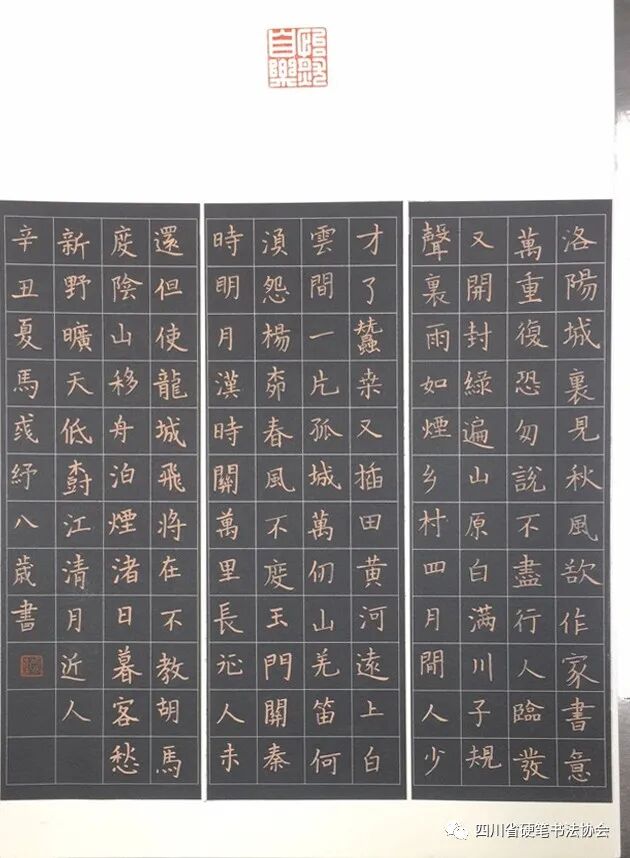 自樂
洛陽城裏見秋風欲作家書意
萬重復恐匆說不盡行人臨發
又開封綠遍山原白滿川子規
聲裏雨如煙乡村四月閒人少
才了蠶桒又插田黄河遠上白
雲間一片孤城萬仞山羌笛何
須怨楊桺春風不度玉門關秦
時明月漢時關萬里長征人未
還但使龍城飛將在不教胡馬
度陰山移舟泊煙渚日暮客愁
新野曠天低樹江清月近人
辛丑夏馬彧紓八歲書
四川省硬笔书法协会